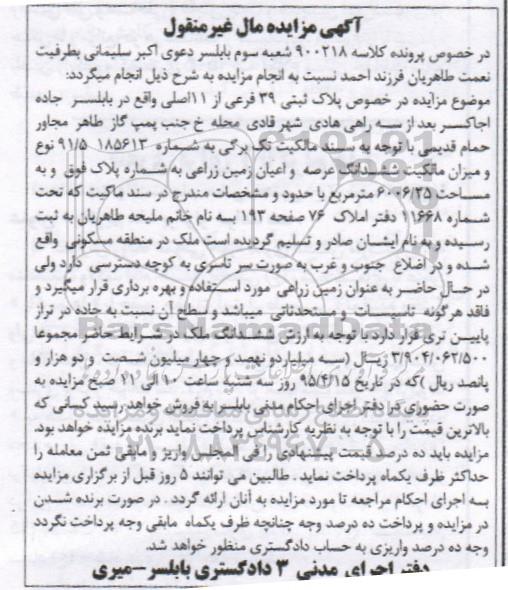 آگهی مزایده مال غیر منقول
در خصوص پرونده کلاسه ۹۰۰۲۱۸ شعبه سوم بابلسر دعوی اکبر سلیمانی بطرفیت
نعمت طاهریان فرزند احمد نسبت به انجام مزایده به شرح ذیل انجام میگردد:
موضوع مزایده در خصوص پلاک ثبتی ۳۹ فرعی از ۱۱اصلی واقع در بابلسر جاده
اجاکسر بعد از سه راهی هادی شهر قادی محله خ جنب پمپ گاز طاهر مجاور
حمام قدیمی با توجه به سند مالکیت تک برگی به شماره ۱۸۵۶۱۳ ۹۱/۵ نوع
و میزان مالکیت ششدانگ عرصه و اعیان زمین زراعی به شماره پلاک فوق و به
مساحت ۶۰۰۶/۳۵ مترمربع با حدود و مشخصات مندرج در سند ماکیت که تحت
شماره ۱۱۶۶۸ دفتر املاک ۷۶ صفحه ۱۹۳ به نام خانم ملیحه طاهریان به ثبت
رسیده و به نام ایشان صادر و تسلیم گردیده است ملک در منطقه مسکونی واقع
شده و در اضلاع جنوب و غرب به صورت سر تاسری به کوچه دسترسی دارد ولی
در حال حاضر به عنوان زمین زراعی مورد استفاده و بهره برداری قرار میگیرد و
فاقد هرگونه تاسیسات و مستحدثاتی میباشد و سطح آن نسبت به جاده در تراز
پایین تری قرار دارد با توجه به ارزش ششدانگ ملک در شرایط حاضر مجموعا
۳/۹۰۴/۰۶۲/۵۰۰ ریال (سه میلیارد و نهصد و چهار میلیون شصت و دو هزار و
پانصد ریال )که در تاریخ ۹۵/۴/۱۵ روز سه شنبه ساعت ۱۰ الی ۱۱ صبح مزایده به
صورت حضوری در دفتر اجرای احکام مدنی بابلسر به فروش خواهد رسید کسانی که
بالاترین قیمت را با توجه به نظریه کارشناس پرداخت نماید برنده مزایده خواهد بود.
مزایده باید ده درصد قیمت پیشنهادی را فی المجلس واریز و مابقی ثمن معامله را
حداکثر ظرف یکماه پرداخت نماید . طالبین می توانند ۵ روز قبل از برگزاری مزایده
به اجرای احکام مراجعه تا مورد مزایده به آنان ارائه گردد . در صورت برنده شدن
در مزایده و پرداخت ده درصد وجه چنانچه ظرف یکماه مابقی وجه پرداخت نگردد
وجه ده درصد واریزی به حساب دادگستری منظور خواهد شد.
دفتر اجرای مدنی ۳ دادگستری بابلسر –میری
ParsNamadData